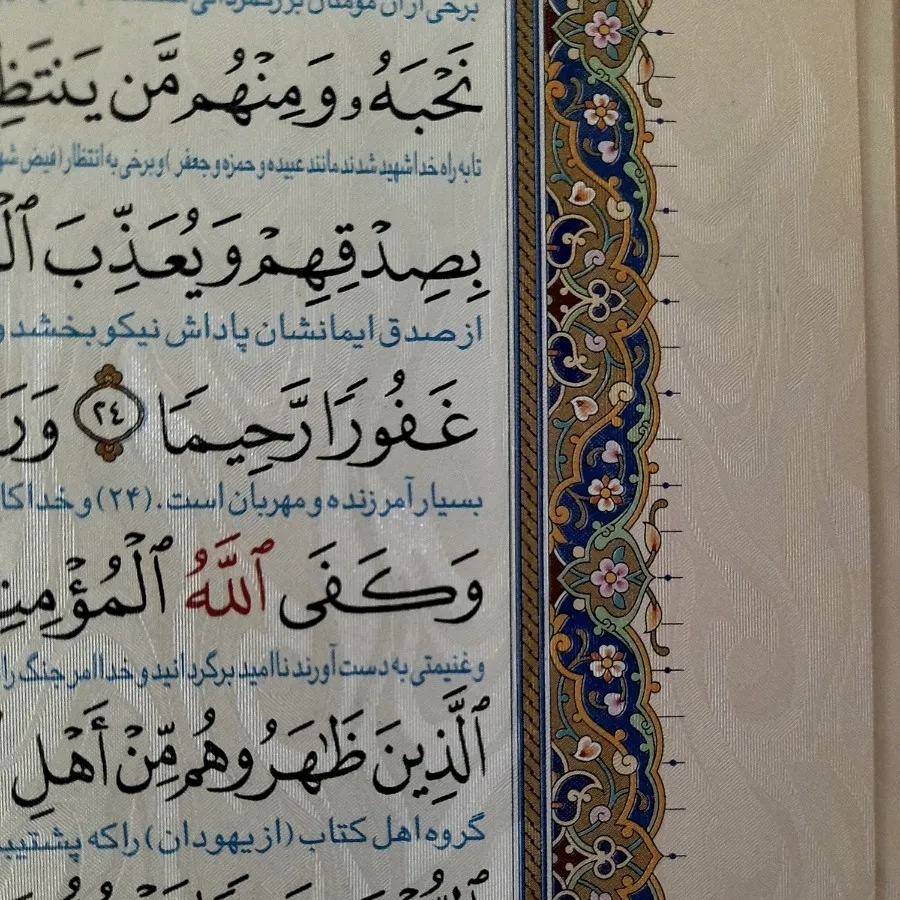 برخی از آن مؤمنان بزرگمردانی
نَحْبَهُۥ وَمِنْهُم مَّن يَنتَظِ
تا به راه خدا شهید شدند مانند عبیده و حمزه و جعفر) و برخی به انتظار (فیض شه
بِصِدْقِهِمْ وَيُعَذِّبَ ٱلْ
از صدق ایمانشان پاداش نیکو بخشد و
غَفُورًا رَّحِيمًا ٢٤ وَرَ
بسیار آمرزنده و مهربان است. (۲۴) و خدا کا
وَكَفَى ٱللَّهُ ٱلْمُؤْمِنِ
و غنیمتی به دست آورند ناامید برگردانید و خدا امر جنگ را
ٱلَّذِينَ ظَٰهَرُوهُم مِّنْ أَهْلِ
گروه اهل کتاب (از یهودان) را که پشتیب